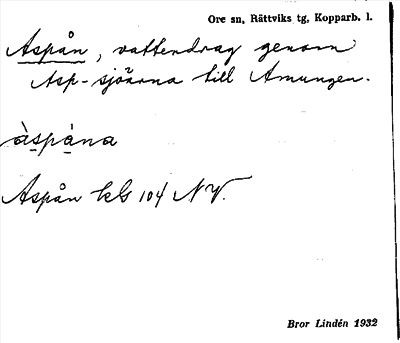 Ore sn, Rättviks tg, Kopparb. l.
Aspån, vattendrag genom
Asp-sjöarna till Amungen.
àspȧna
Aspån kbs 104 NV.
Bror Lindén 1932